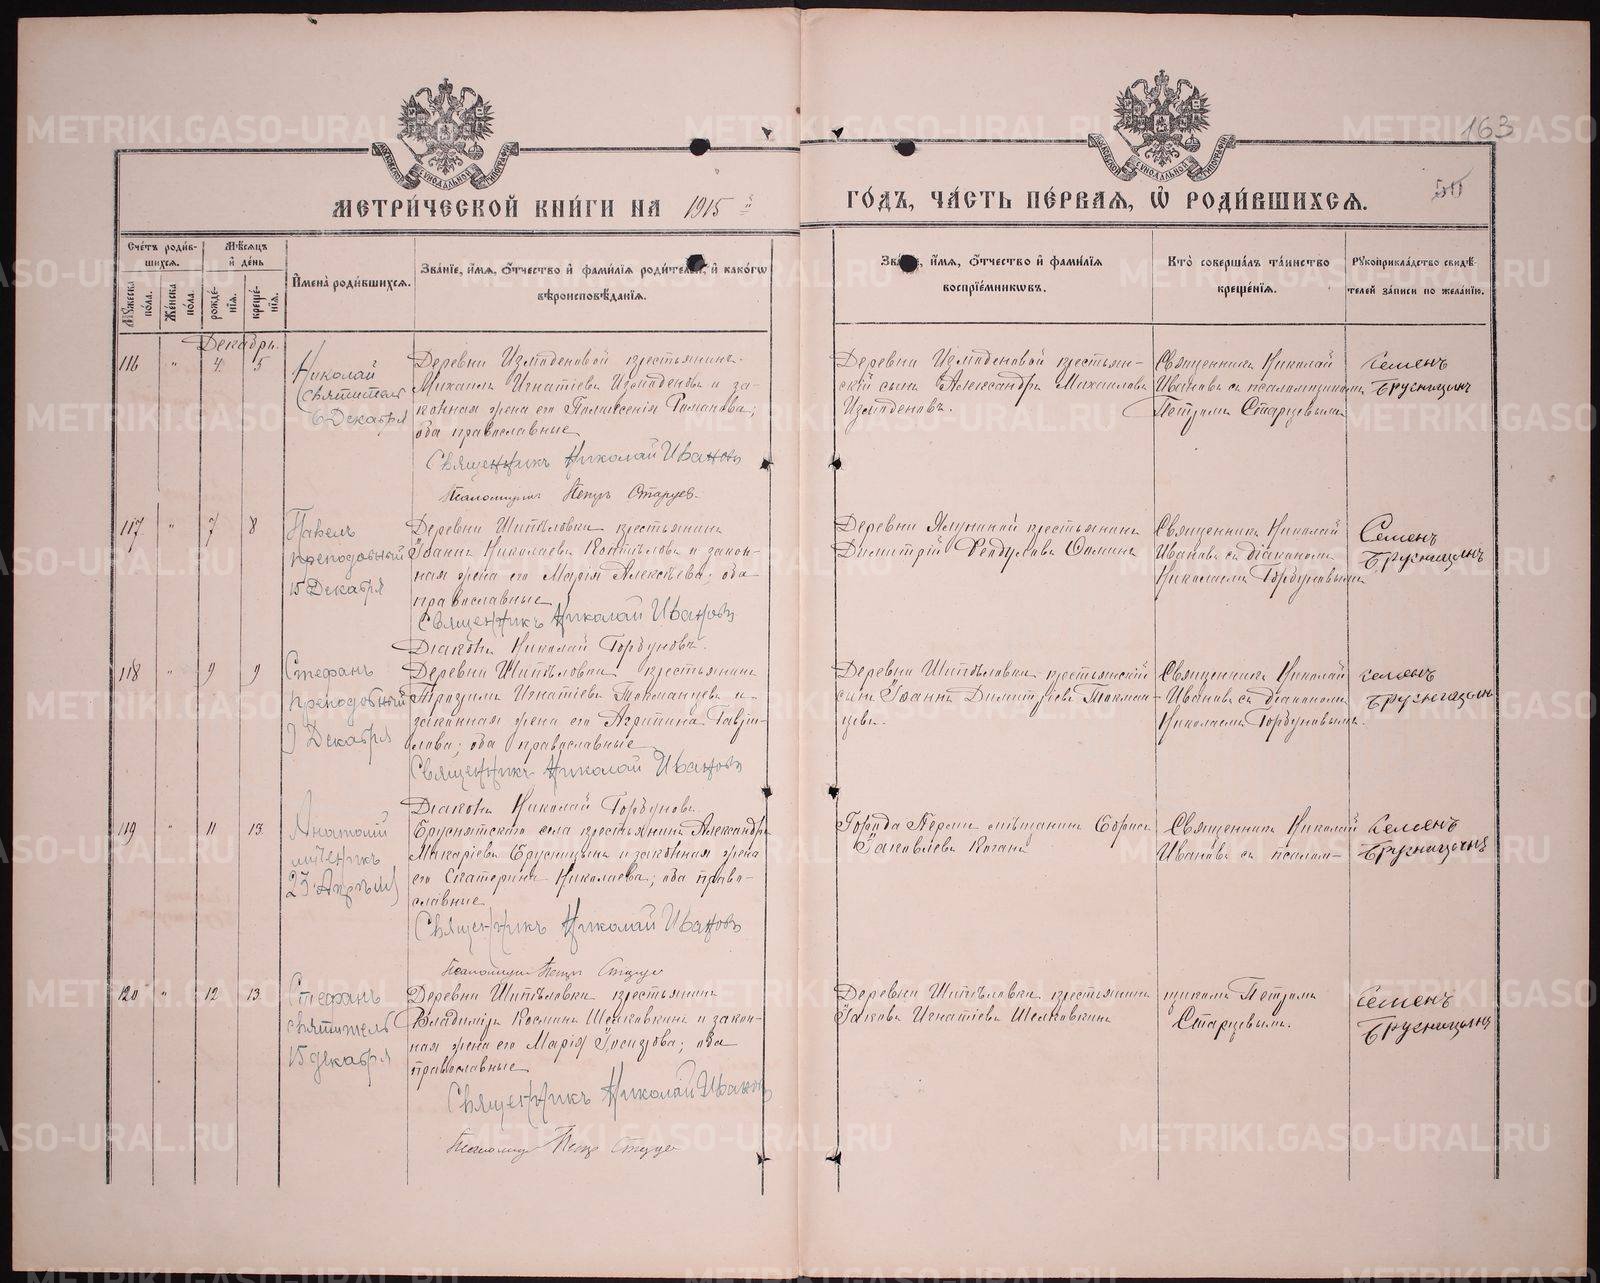 163
50
МЕТРИ́ЧЕСКОЙ КНИ́ГИ НА 1915 й
ГО́ДЪ, ЧА́СТЬ ПЕ́РВАЯ, Ѿ РОДИ́ВШИХСЯ.
Сче́тъ роди́в-
шихся.
Мужеска по́ла.
Же́нска по́ла.
Мѣ́сяцъ
и҆ де́нь
рожде́-
нїя.
креще́-
нїя.
И҆мена̀ роди́вшихся.
Зва́нїе, и҆́мя, ѻ҆́тчество и҆ фами́лїя роди́телей, и҆ како́гѡ
вѣроисповѣ́данїя.
Зва́нїе, и҆́мя, ѻ҆́тчество и҆ фами́лїя
воспрїе́мникѡвъ.
Кто̀ соверша́лъ та́инство
креще́нїя.
Рꙋкоприкла́дство свидѣ́-
телей за́писи по жела́нїю.
Декабрь.
116 " 4 5
Николай
Святитель
6 Декабря
Деревни Измоденовой крестьянинъ
Михаилъ Игнатіевъ Измоденовъ и за-
конная жена его Романова;
оба православные
Священникъ Николай Ивановъ
Псаломщикъ Петръ Старцев
Деревни Измоденовой крестьян-
скій сынъ Александръ Михаиловъ
Измоденовъ.
Священникъ Николай
Ивановъ съ псаломщикомъ
Петромъ Старцевымъ
Семенъ
Брусницынъ
117 " 7 8
Павелъ
преподобный
15 Декабря
Деревни Шипѣловки крестьянинъ
Іоаннъ Николаевъ и закон-
ная жена его Марія Алексѣева; оба
православные
Священникъ Николай Ивановъ
Діаконъ Николай Горбуновъ.
Деревни Ялуниной крестьянинъ
Димитрій Ѳоминъ
Священникъ Николай
Ивановъ съ діакономъ
Николаемъ Горбуновымъ
Семенъ
Брусницынъ
118 " 9 9
Стефанъ
преподобный
9 Декабря
Деревни Шипѣловки крестьянинъ
Игнатіевъ Токманцевъ и
законная жена его Агриппина Гаврі-
лова; оба православные
Священникъ Николай Ивановъ
Діаконъ Николай Горбуновъ
Деревни Шипѣловки крестьянскій
сынъ Іоаннъ Димитріевъ Токман-
цевъ.
Священникъ Николай
Ивановъ съ діакономъ
Николаемъ Горбуновымъ.
Семенъ
Брусницынъ
119 " 11 13
Анатолій
мученикъ
23 Апрѣля
Бруснятскаго села крестьянинъ Александръ
Макаріевъ Брусницынъ и законная жена
его Екатерина Николаева; оба право-
славные
Священникъ Николай Ивановъ
Псаломщикъ Петръ Старцев
Города Перми мѣщанинъ Борисъ
Іаковлевъ Коганъ
Священникъ Николай
Ивановъ съ псалом-
Семенъ
Брусницынъ
120 " 12 13
Стефанъ
святитель
15 декабря
Деревни Шипѣловки крестьянинъ
Владиміръ Косминъ Шелковкинъ и закон-
ная жена его Марія Іосифова; оба
православные
Священникъ Николай Ивановъ
Псаломщикъ Петръ Старцев
Деревни Шипѣловки крестьянинъ
Іаковъ Игнатіевъ Шелковкинъ
щикомъ Петромъ
Старцевымъ.
Семенъ
Брусницынъ
METRIKI.GASO-URAL.RU